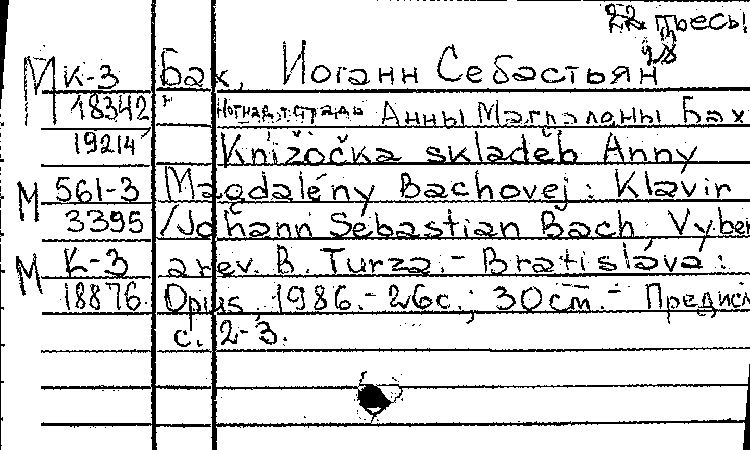 22 пьесы
М К-3 Бах, Иоганн Себастьян
18342 Нотная тетрадь Анны Магдалены Бах
19214 Knižočka skladeb Anny
М 561-3 Magdalény Bachovej: Klavir
3395 /Johann Sebastian Bach, Vyber
М К-3 a rev. B. Turza.- Bratislava:
18876 Opus, 1986.- 26с.; 30см.- Предисл
с. 2-3.